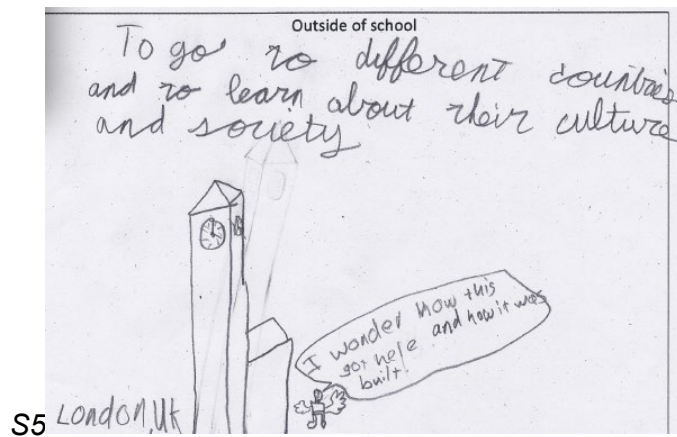 Outside of school
To go to different countries
and to learn about their culture
and society
I wonder how this
got here and how it was
built!
London, UK
S5